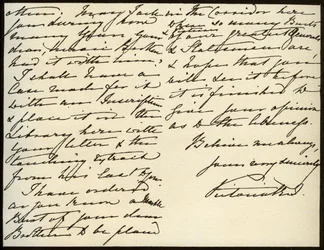 them.
your
dear,
had it with him,
I shall have a
Case made for it
with an Inscription
& place it in the
Library here with
your letter & the
touching extract
from his last to you.
I have ordered,
as you know, a Marble
Bust of your dear
Brother to be placed
in the Corridor here
where so many Busts
& Pictures of our greatest Generals
& Statesmen are,
& hope that you
will see it before
it is finished to
give your opinion
as to the likeness.
Believe me always,
yours very sincerely
Victoria R.I.